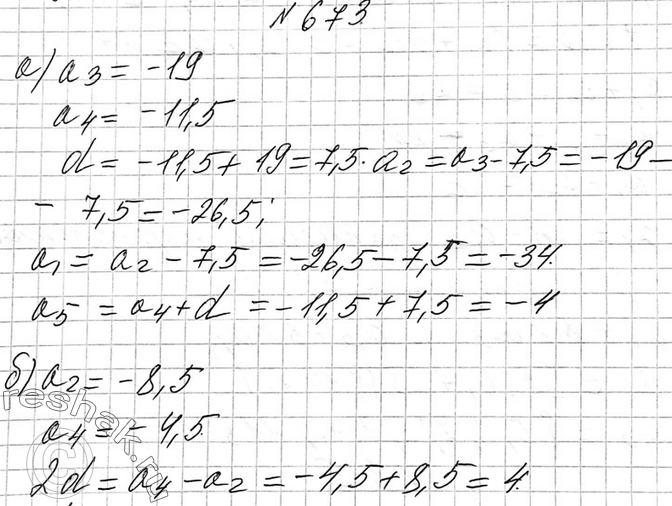 № 673
а) a₃ = -19
a₄ = -11,5
d = -11,5 + 19 = 7,5. a₂ = a₃ - 7,5 = -19 -
- 7,5 = -26,5;
a₁ = a₂ - 7,5 = -26,5 - 7,5 = -34.
a₅ = a₄ + d = -11,5 + 7,5 = -4
б) a₂ = -8,5
a₄ = -4,5.
2d = a₄ - a₂ = -4,5 + 8,5 = 4.
reshak.ru